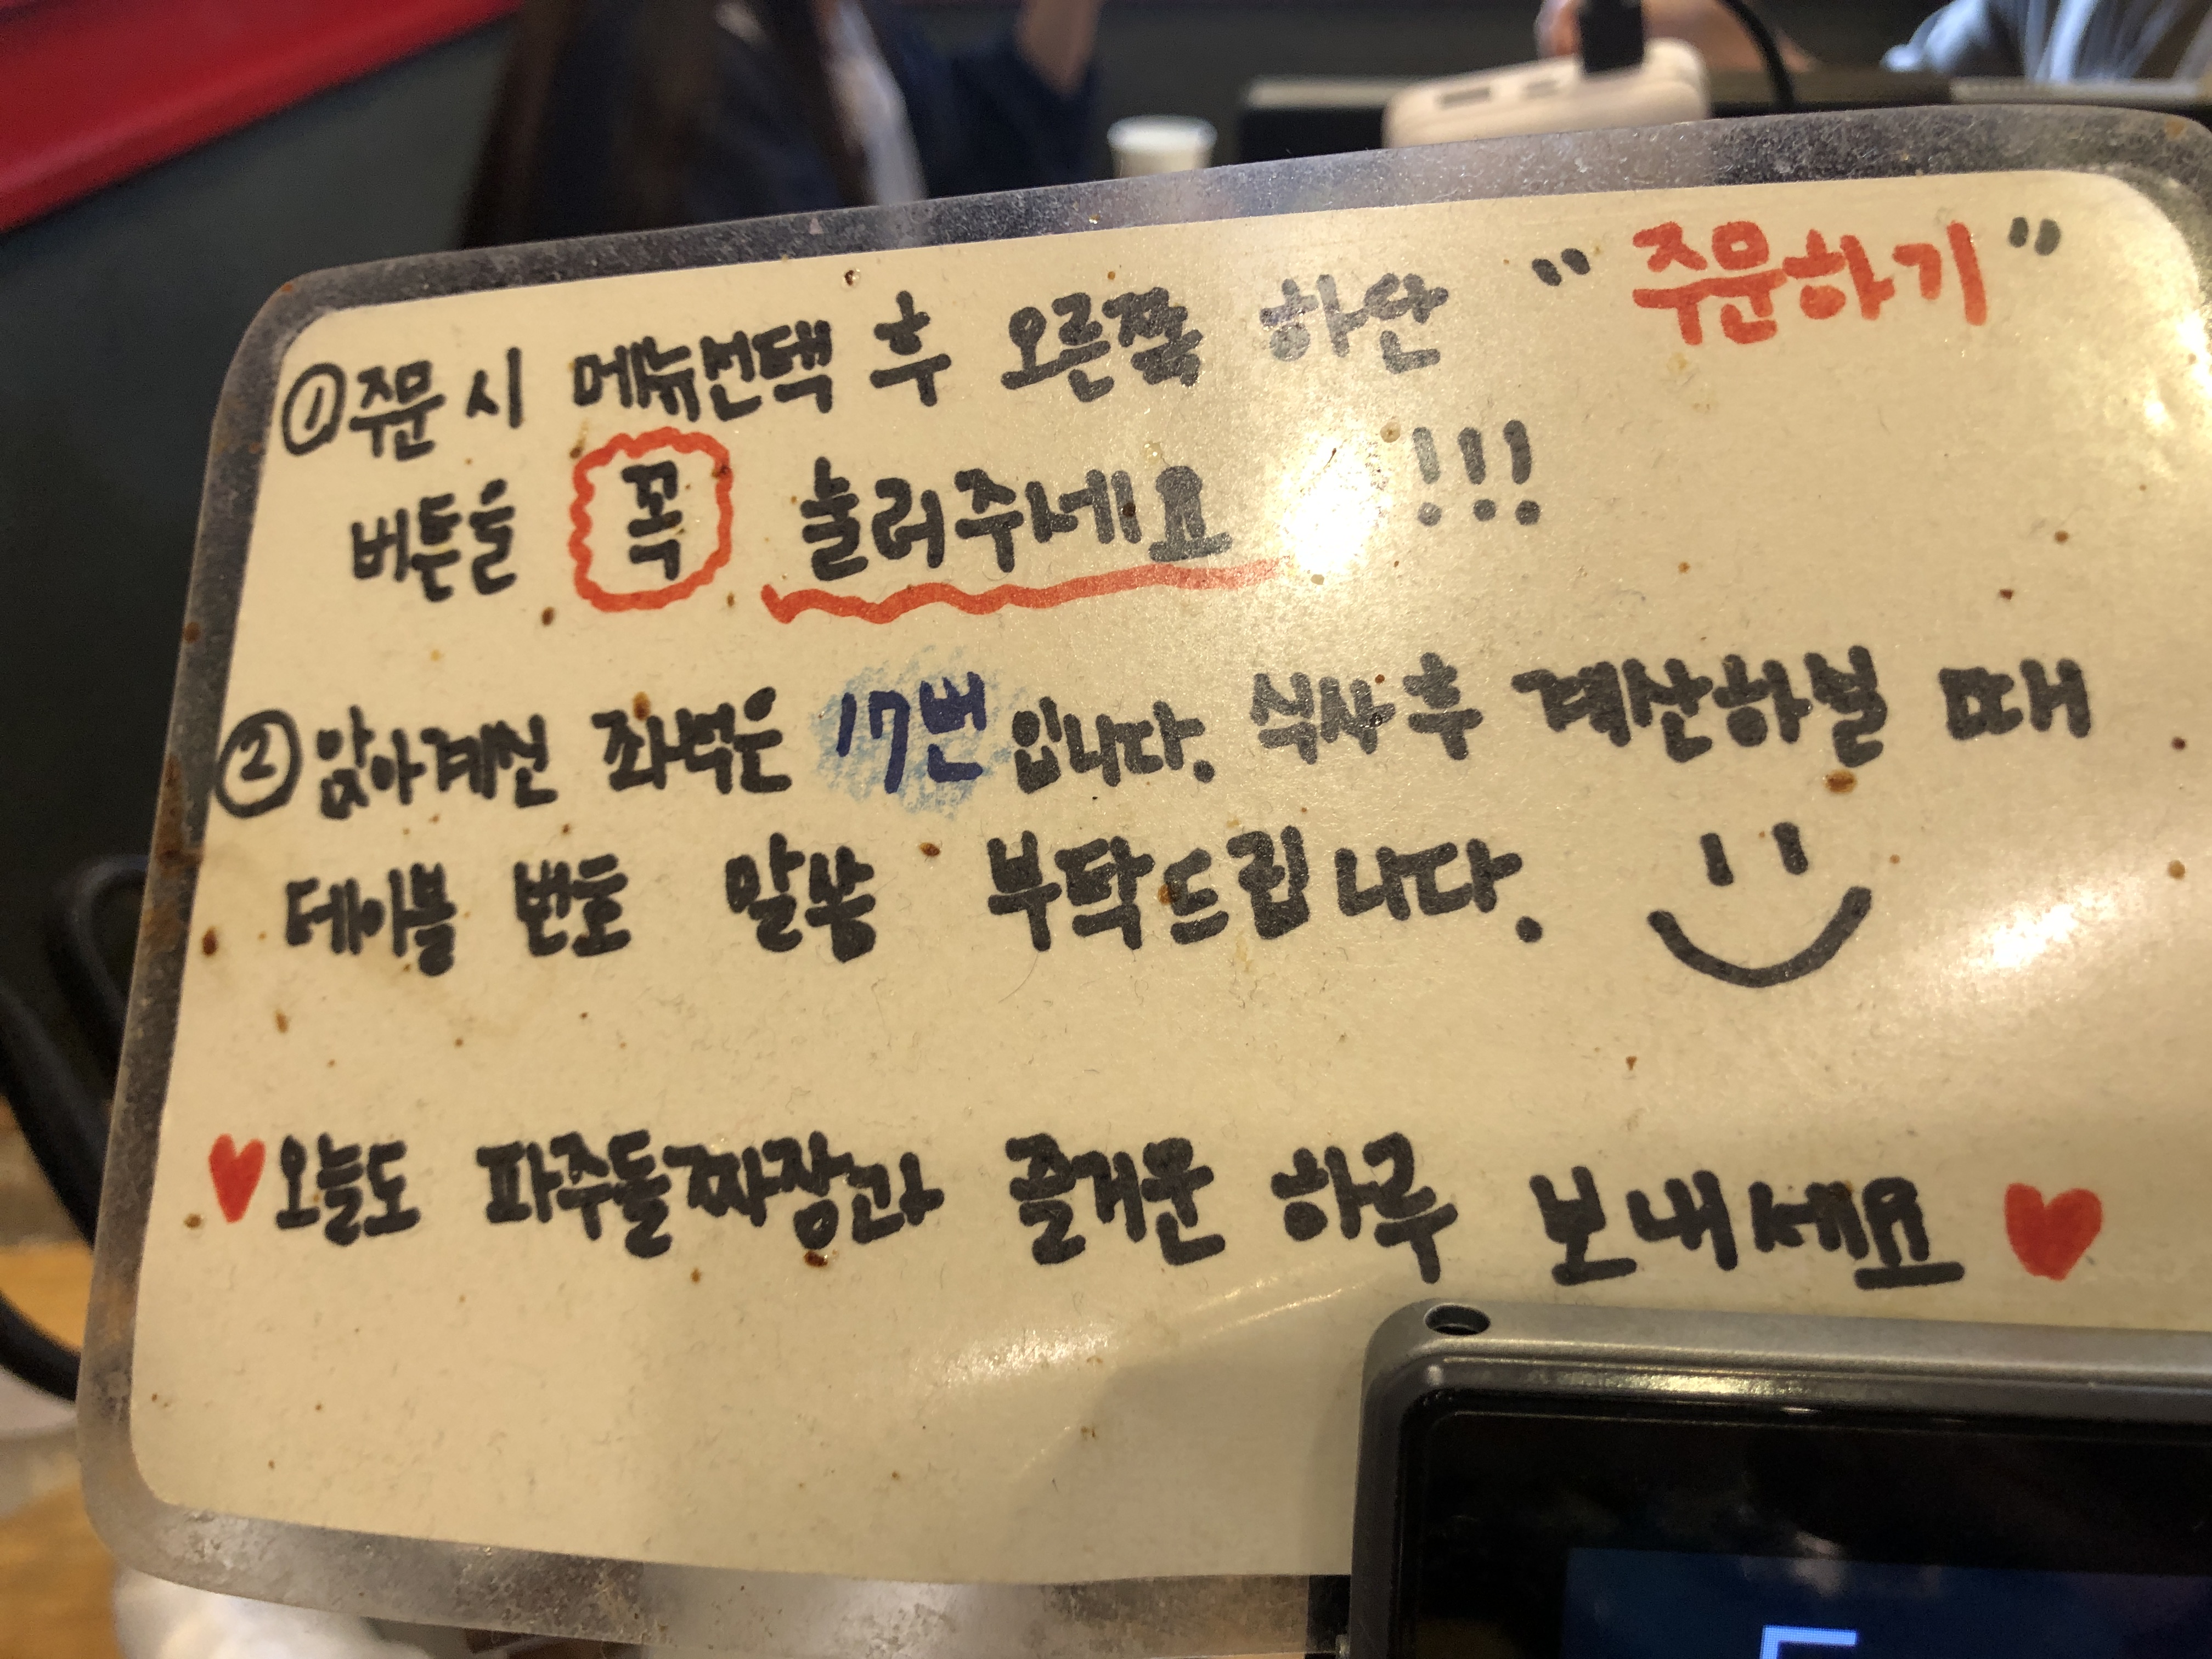 ① 주문 시 메뉴선택 후 오른쪽 하단 "주문하기"
버튼을 꼭 눌러주세요 !!!
② 앉아계신 좌석은 17번 입니다. 식사 후 계산하실 때
테이블 번호 말씀 부탁드립니다.
♥오늘도 파주돌짜장과 즐거운 하루 보내세요♥